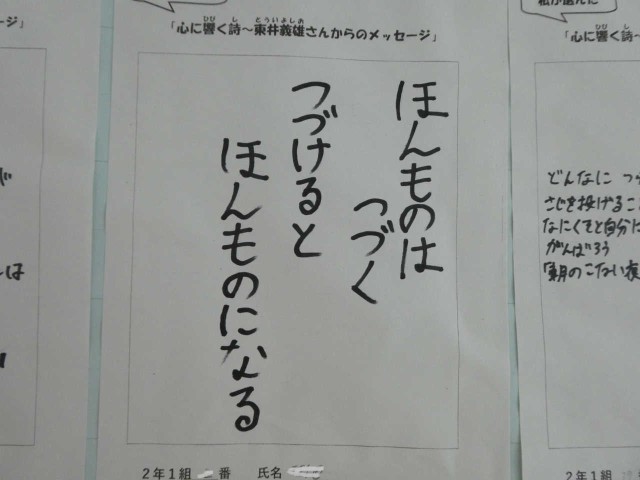 「心に響く詩～東井義雄さんからのメッセージ」
ほんものは
つづく
つづけると
ほんものになる
2年1組 二番 氏名
ジ」
は
「心に響く詩～
どんなに つ
さじを投げるこ
なにくそと自分に
がんばろう
のこない夜
2年1組